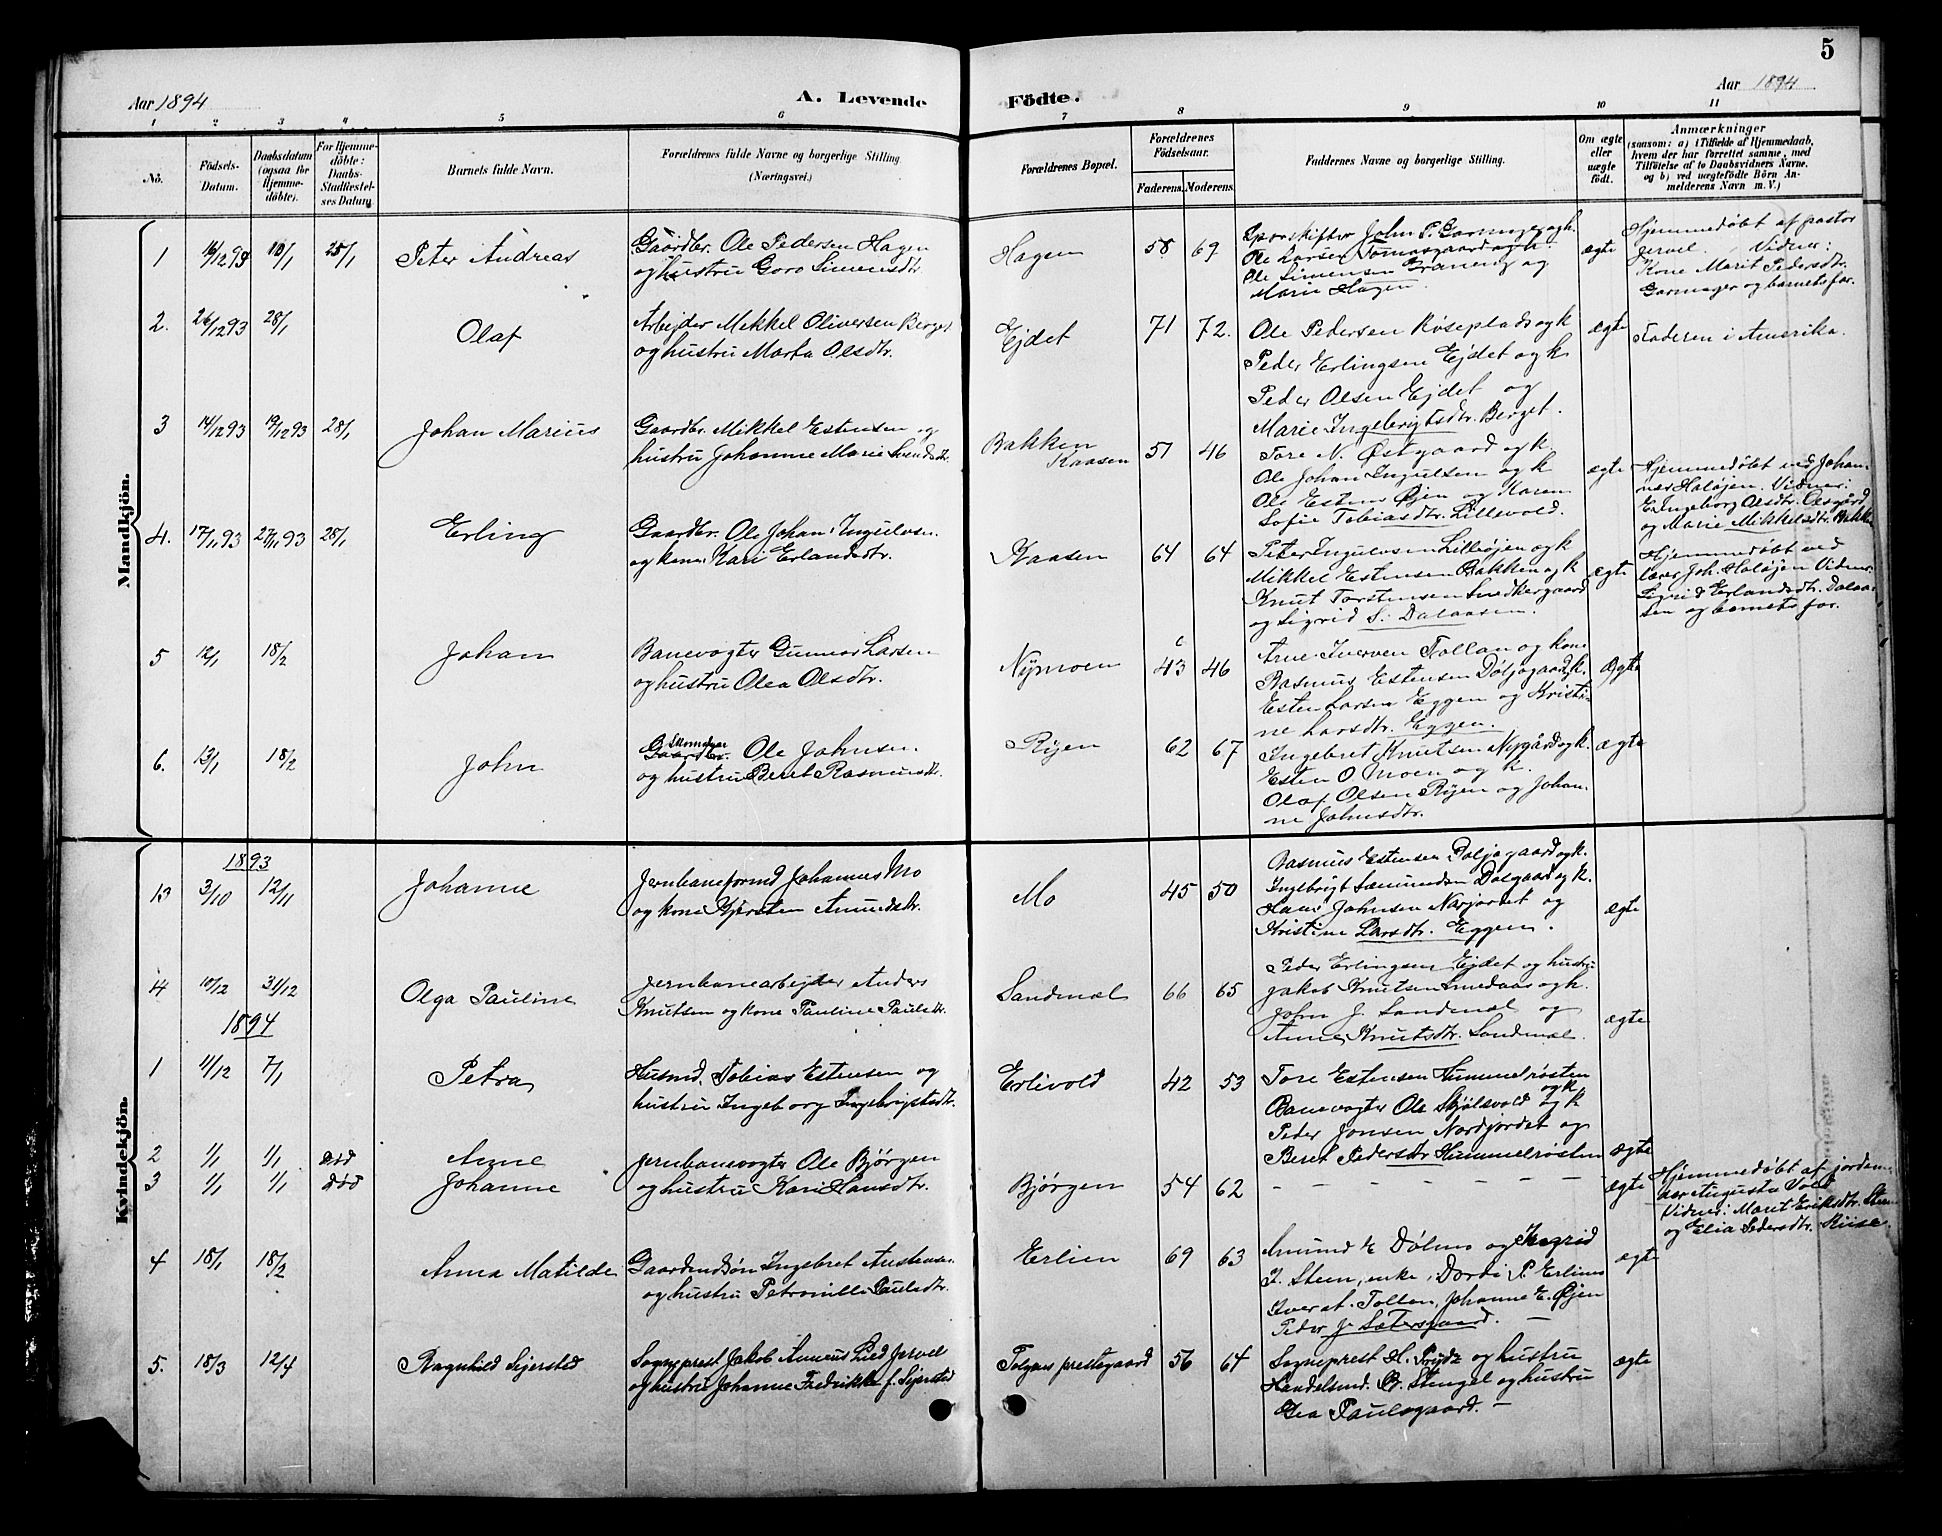 5
Aar 1894
A. Levende
Födte.
Aar 1894
1 2 3 4 5 6 7 8 9 10 11
No.
Födsels-
Datum.
Daabsdatum
(ogsaa for
Hjemme-
döbte).
For Hjemme-
döbte:
Daabs-
Stadfæstel-
ses Datum.
Barnets fulde Navn.
Forældrenes fulde Navne og borgerlige Stilling
(Næringsvei.)
Forældrenes Bopæl.
Forældrenes
Födselsaar.
Faderens. Moderens.
Faddernes Navne og borgerlige Stilling.
Om ægte
eller
uægte
födt.
Anmærkninger
(saasom: a) i Tilfælde af Hjemmedaab,
hvem der har forrettet samme, med
Tilföielse af to Daabsvidners Navne,
og b) ved uægtefödte Börn An-
melderens Navn m. V.)
Mandkjön.
1 16/12 93 10/1 25/1 Peter Andreas
Gaardbr. Ole Pedersen Hagen
og hustru Goro Simensdtr.
Hagen 58 69
Sporskifter John P. Garmager og k.
Ole Larsen Tomasgaard og k.
Ole Simensen Graneng og
Marie Hagen.
ægte
Hjemmedøbt af pastor
Jervel. Vidner:
Kone Marit Pedersdtr.
Garmager og barnets far.
2. 26/12 93 28/1 Olaf
Arbejder Mikkel Oliversen Berget
og hustru Marta Olsdtr.
Ejdet 71 72.
Ole Pedersen Røseplads og k
Peder Erlingsen Ejdet og k
Peder Olsen Ejdet og
Marie Ingebrigtsdtr. Berget.
ægte
Faderen i Amerika.
3 14/12 93 19/12 93 28/1 Johan Marius
Gaardbr. Mikkel Estensen og
hustru Johanne Marie Svendsdtr.
Bakken
Kaasen 51 46
Tore N. Østgaard og k.
Ole Johan Ingulsen og k
Ole Estens Øjen og Karen
Sofie Tobiasdtr. Lillevold.
ægte
Hjemmedøbt ved Johan-
nes Haløjen. Vidner:
Ingeborg Olsdtr. Olsgård
og Marie Mikkelsdtr. Bakke
4. 17/11 93 27/11 93 28/1 Erling
Gaardbr. Ole Johan Ingulvsen
og kone Kari Erlandsdtr.
Kaasen 64 64
Peter Ingulvsen Lilleøjen og k
Mikkel Estensen Bakken og k
Knut Torstensen Smedkergaard
og Sigrid S. Dalaasen.
ægte
Hjemmedøbt ved
lærer Joh. Haløjen Vidner:
Sigrid Erlandsdtr. Dalaa-
sen og barnets far.
5 12/1 18/2 Johan
Banevogter Gunnar Larsen
og hustru Olea Olsdtr.
Nymoen 43 46
Arne Iversen Tollan og kone
Rasmus Estensen Døljagaard og k.
Esten Larsen Eggen og Kristi-
ne Larsdtr. Eggen.
Ægte
6. 13/1 18/2 John
Gaardbr. Ole Johnsen
og hustru Beret Rasmusdtr.
Ryen 62 67
Ingebret Knutsen Nygård og k.
Esten O. Moen og k.
Olaf Olsen Ryen og Johan-
ne Johnsdtr.
ægte
Kvindekjön.
1893
13 3/10 12/11 Johanne
Jernbaneformd Johannes Mo
og kone Kjersten Amundsdtr.
Mo 45 50
Rasmus Estensen Doljagaard og k.
Ingebrigt Sæmundsen Dalgaard og k.
Hans Johnsen Narjordet og
Kristine Larsdtr. Eggen.
ægte
14 10/12 31/12 Olga Pauline
Jernbanearbejder Anders
Knutsen og kone Pauline Paulsdtr.
Sandmæl 66 65
Peder Erlingsen Ejdet og hustru
Jakob Knutsen Smedaas og k.
John J. Sandmæl og
Anne Knutsdtr. Sandmæl.
ægte
1894
1 11/12 7/1 Petra
Husmd. Tobias Estensen og
hustru Ingeborg Ingebrigtsdtr.
Erlivold 42 53
Tore Estensen Hummelrøsten
og k
Banevogter Ole Skjølsvold og k
Peder Jonsen Nordjordet og
Beret Pedersdtr Hummelrøsten
ægte
2 1/1 1/1 død Anne
3 1/1 1/1 død Johanne
Jernbanevogter Ole Bjørgen
og hustru Kari Hansdtr.
Bjørgen 54 62
– – – – – – –
ægte
Hjemmedøbt af jordem-
Augusta Vold
Vidner: Marit Eriksdtr. Steen
og Elia Pedersdtr. Riise.
4 18/1 18/2 Anna Matilde
Gaardmdsøn Ingebret
og hustru Petronille Paulsdtr.
Erlien 69 63
Amund E Dølmo og Ingrid
J. Steen, enke, Dordi P. Erlien
Iver at. Tollan, Johanne E. Øjen
Peder J. Sætersgaard. –
ægte
5. 18/3 12/4 Ragnhild Sejersted
Sogneprest Jakob Anneus Lied Jervel
og hustru Johanne Fredrikke f. Sejersted
Tolgens prestegaard 56 64
Sogneprest H. Prydz og hustru
Handelsmd. B. Stengel og hustru
Gea Paulsgaard. –
ægte